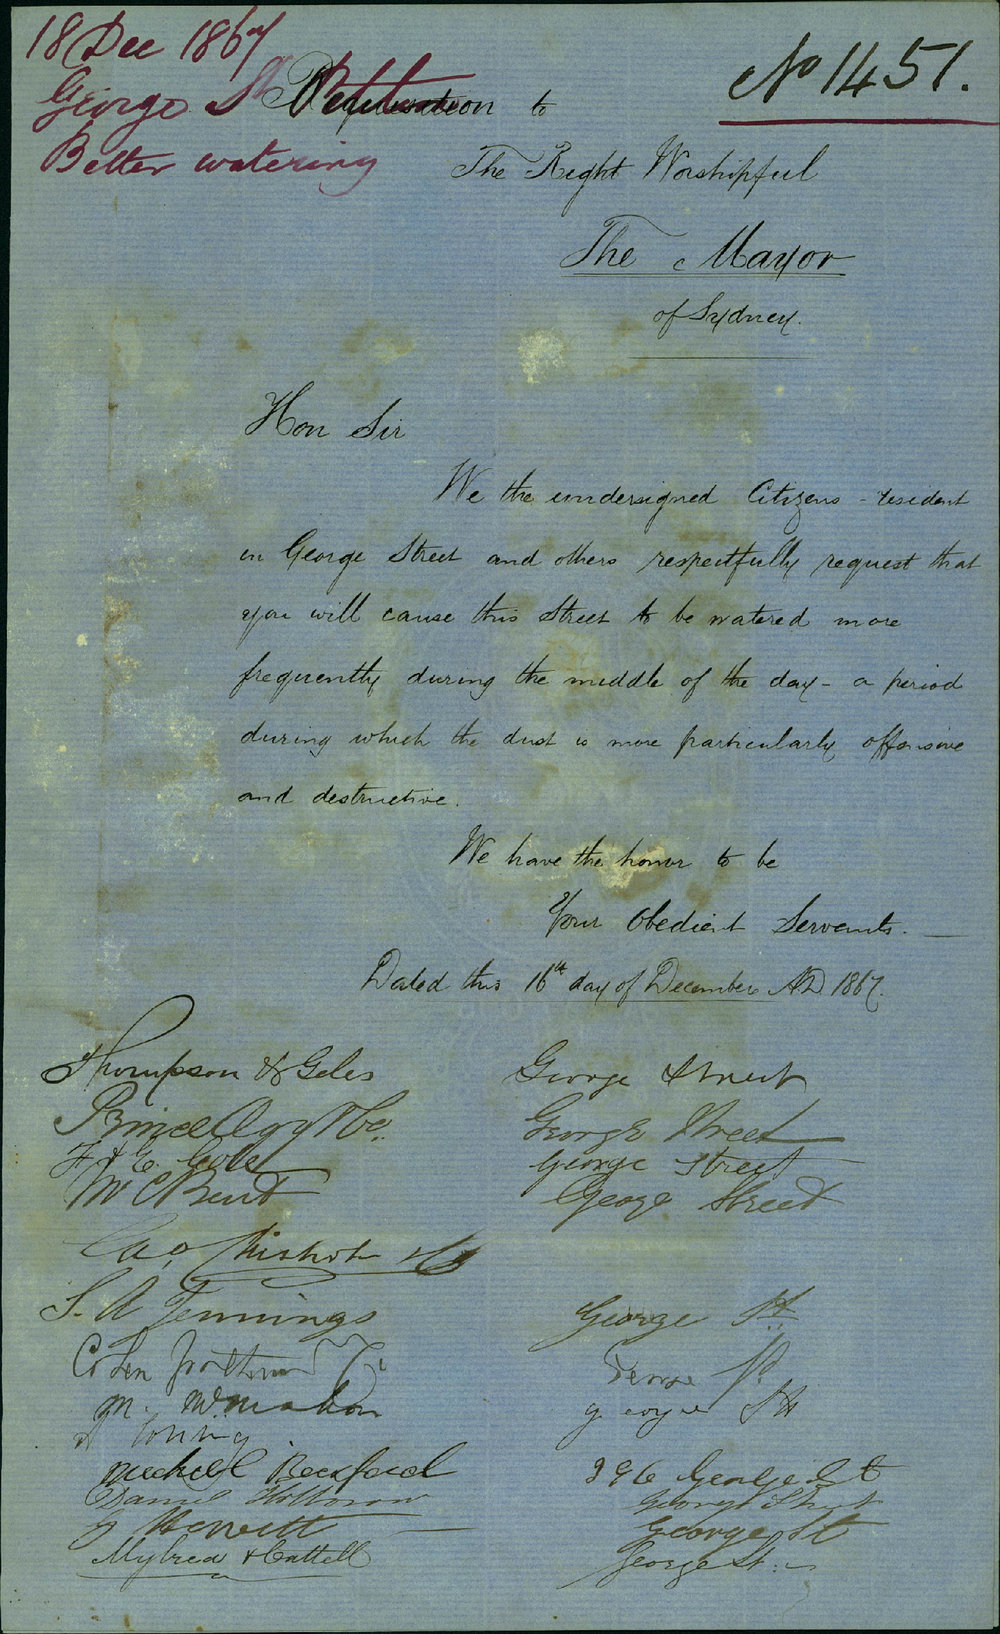 18 Dec 1867
George St
Better watering
No 1451.
Requisition to
The Right Worshipful
The Mayor
of Sydney.
Hon Sir
We the undersigned Citizens - resident
in George Street and others respectfully request that
you will cause this Street to be watered more
frequently during the middle of the day - a period
during which the dust is more particularly offensive
and destructive.
We have the honor to be
Your Obedient Servants. —
Dated this 16th day of December AD 1867.
Thompson & Giles George Street
Prince Ogg & Co. George Street
F & E. Cole George Street
George Street
S. A Jennings George St.
Cohen
M. McMahon george St
Michell 396 George St
Daniel George Street
Hewitt George St
Myhrea & Cattell George St. —